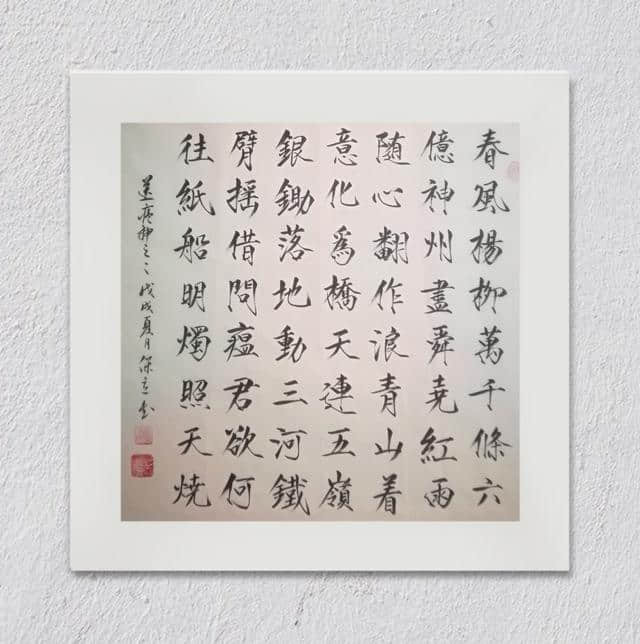 春風楊柳萬千條六
億神州盡舜堯紅雨
随心翻作浪青山着
意化為橋天連五嶺
銀鋤落地動三河鐵
臂摇借問瘟君欲何
往紙船明燭照天燒
送瘟神之二 戊戌夏月